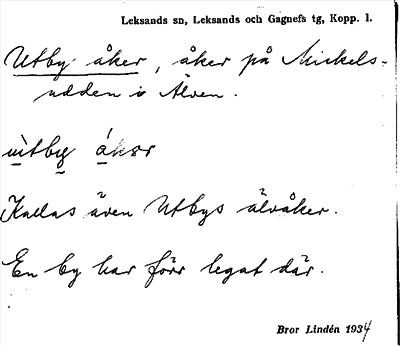 Leksands sn, Leksands och Gagnefs tg, Kopp. l.
Utby åker, åker på Mickels-
udden i Älven.
ùtby ákər
Kallas även Utbys älvåker.
En by har förr legat där.
Bror Lindén 1934